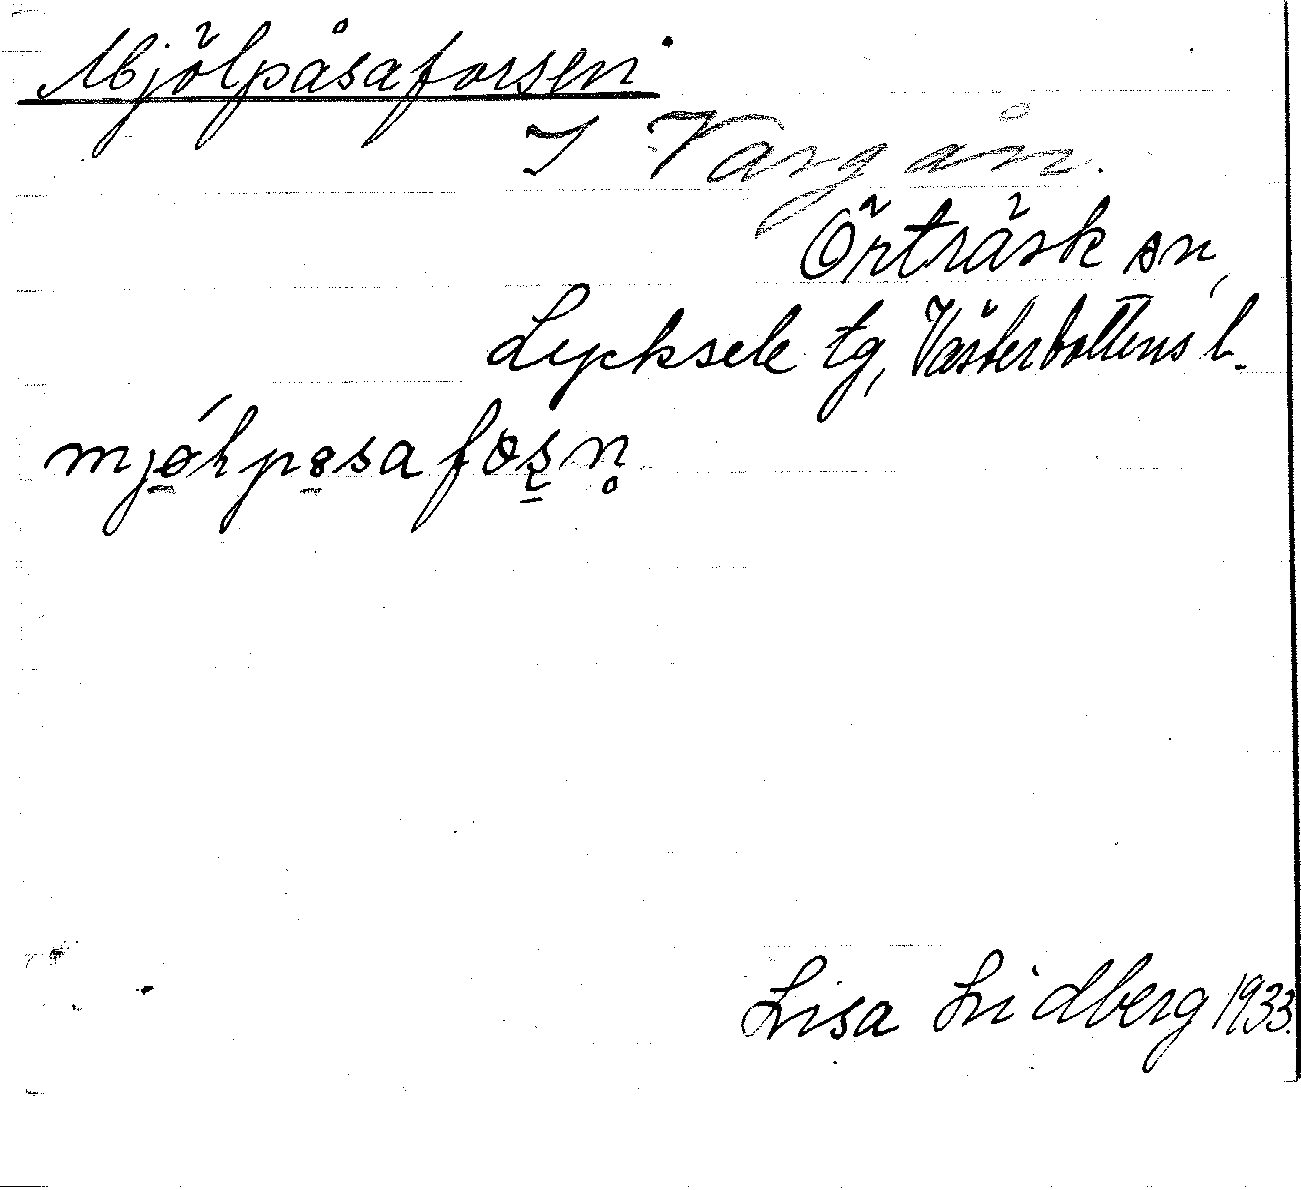 Mjölpåsaforsen
I Vargån.
Örträsk sn,
Lycksele tg, Västerbottens l.
Lisa Lidberg 1933.